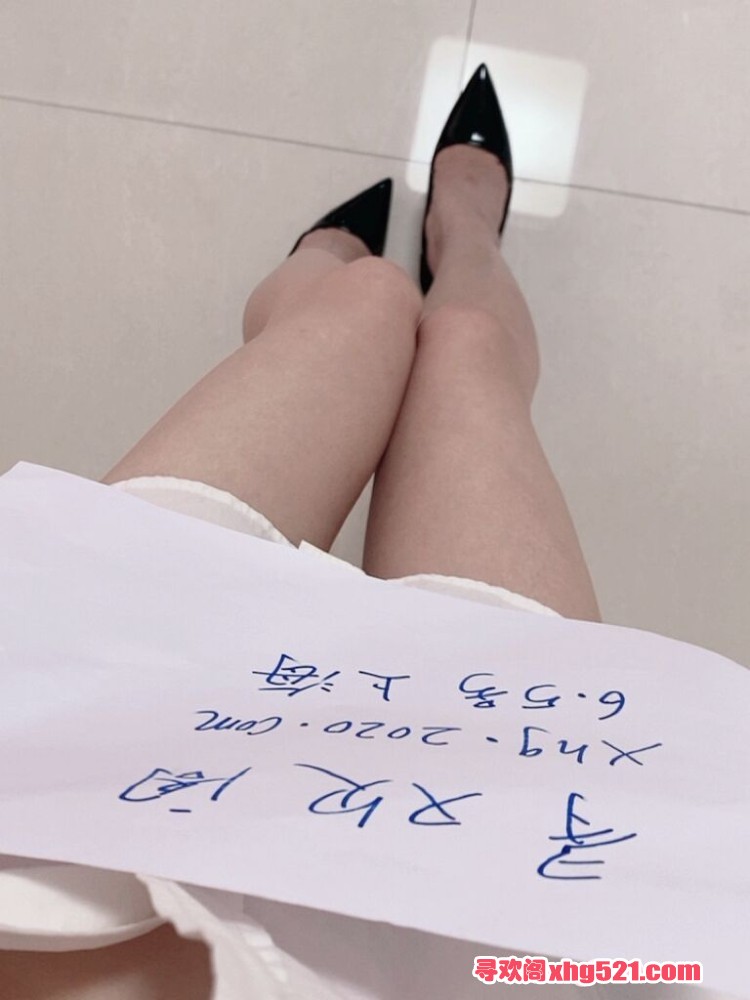 寻欢阁
xhg.2020.com
6.5号上海
寻欢阁xhg521.com